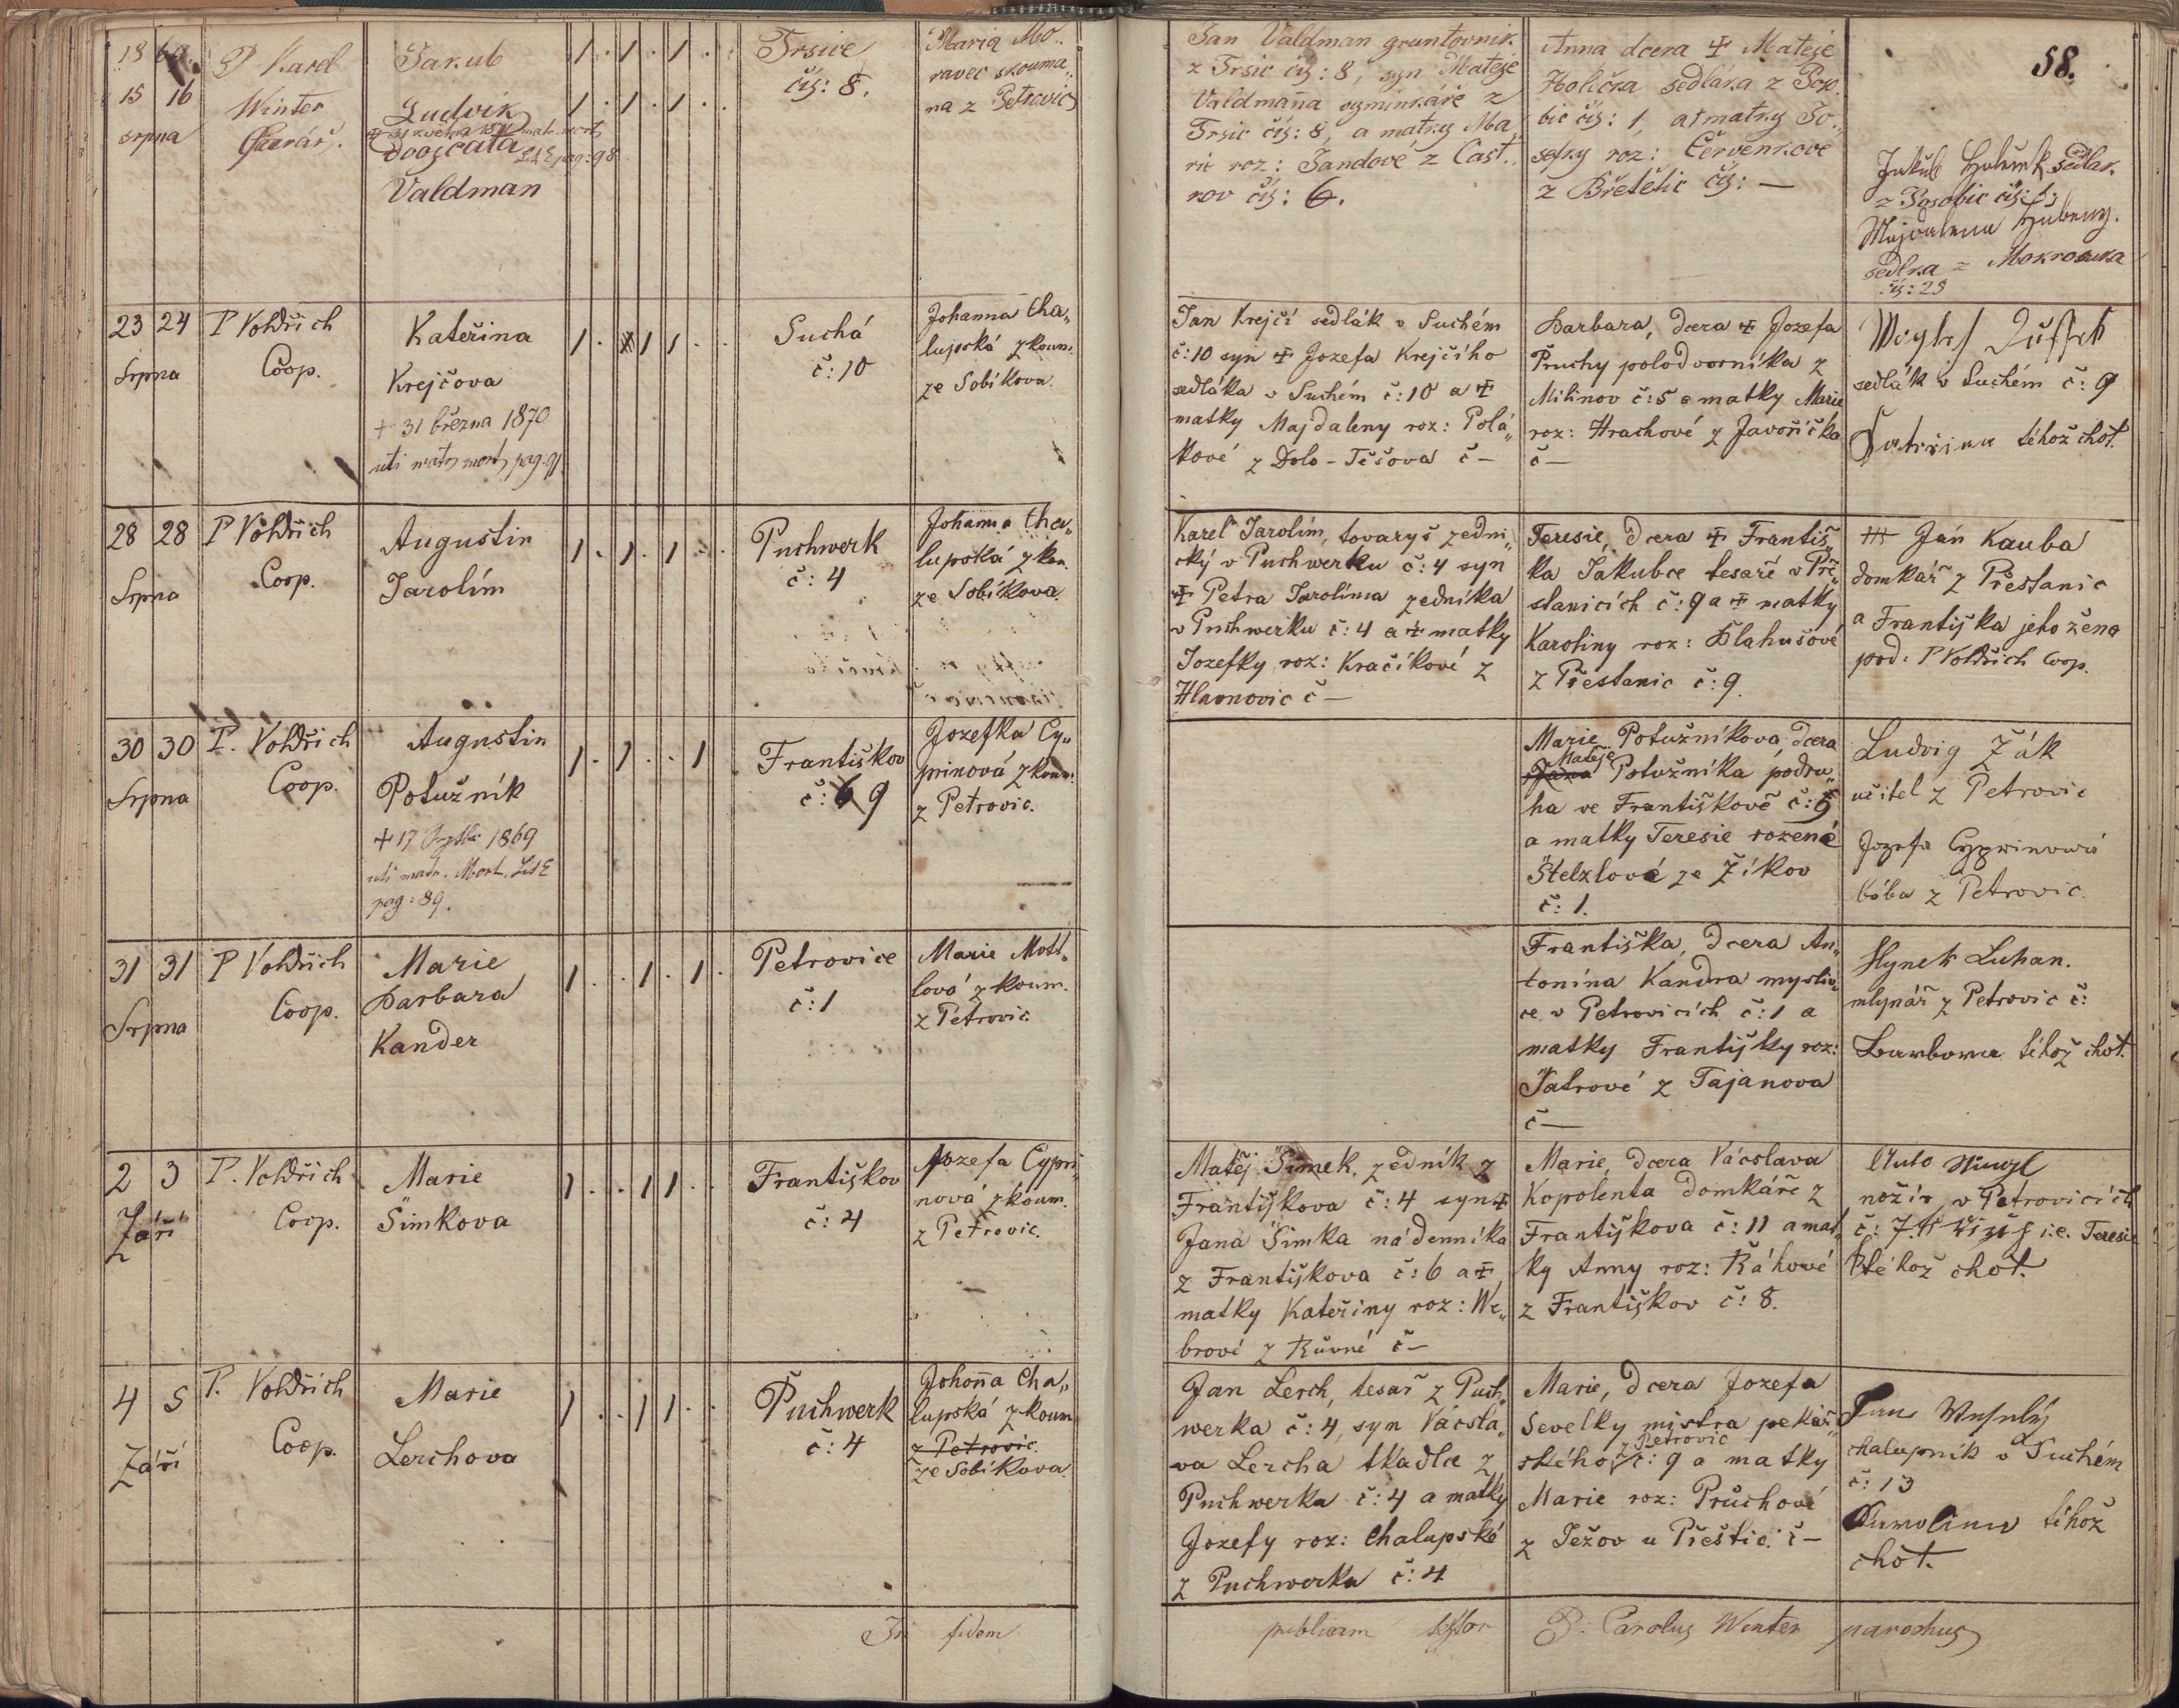 58.
18 69.
15 16
srpna
P Karel
Winter
farář.
Jakub
Ludvík
dvojčata
Valdman
1 . 1 . 1 .
1 . 1 . 1 . .
Trsice
čís: 8.
Maria Mo„
ravec skouma„
na z Petrovic
Jan Valdman gruntovník
z Trsic čís: 8, syn Matěje
Valdmana vyminkáře z
Trsic čís: 8, a matky Ma„
rie roz: Jandové z Část„
rov čís: 6.
Anna dcera ✝ Matěje
Holečka sedláka z
bic čís: 1, a ✝ matky Jo„
sefky roz: Červenkové
z Břetětic čís: —
Jakub sedlák
z čís: 1;
Majdalena Hubený
sedlka z Mokrosuka
čís: 23
23 24
Srpna
P Voldřich
Coop.
Kateřina
Krejčova
+ 31 března 1870
uti matr mort pag. 91.
1 . 1 1 . .
Suchá
č: 10
Johanna Cha„
lupská zkoum.
ze Sobíkova.
Jan Krejčí sedlák v Suchém
č: 10 syn ✝ Jozefa Krejčího
sedláka v Suchém č: 10 a ✝
matky Majdaleny roz: Polá„
kové z Dolo-Těšova č —
Barbara, dcera ✝ Jozefa
Pruchy polodvorníka z
Milinov č: 5 a matky Marie
roz: Hrachové z Javoříčka
č —
sedlák v Suchém č: 9
Kateřina téhož choť.
28 28
Srpna
P Voldřich
Coop.
Augustin
Jarolím
1 . 1 . 1 . .
Puchwerk
č: 4
Johanna Cha„
lupská zkou.
ze Sobíkova.
Karel Jarolím, tovaryš zedni„
cký v Puchwerku č: 4 syn
✝ Petra Jarolíma zedníka
v Puchwerku č: 4 a ✝ matky
Jozefky roz: Kračíkové z
Hlavnovic č —
Teresie, dcera ✝ Františ„
ka Jakubce tesaře v Pře„
stanicích č: 9 a ✝ matky
Karoliny roz: Blahušové
z Přestanic č: 9.
+++ Ján Kauba
domkář z Přestanic
a Františka jeho žena
pod: P Voldřich Coop.
30 30
Srpna
P. Voldřich
Coop.
Augustin
Potužník
✝ 17 1869
uti matr. Mort. Lit E
pag: 89.
1 . 1 . . 1
Františkov
č: 6 9
Jozefka Cy„
prinová zkoum:
z Petrovic.
Marie Potužníkova dcera
Matěje
Jana Potužníka podru„
ha ve Františkově č: 9
a matky Teresie rozené
Štelzlové ze Žíkov
č: 1.
Ludvig Žák
učitel z Petrovic
Jozefa Cyprinowá
bába z Petrovic.
31 31
Srpna
P Voldřich
Coop.
Marie
Barbara
Kander
1 . . 1 . 1 .
Petrovice
č: 1
Marie Mott„
lová zkoum.
z Petrovic.
Františka, dcera An„
tonína Kandra mysliv„
ce v Petrovicích č: 1 a
matky Františky roz:
Jatrové z Tajanova
č —
Hynek Luhan.
mlynář z Petrovic č:
Barbora téhož choť.
2 3
Září
P. Voldřich
Coop.
Marie
Šimkova
1 . . 1 1 . .
Františkov
č: 4
Jozefa Cypri„
nová zkoum.
z Petrovic.
Matěj Šimek, zedník z
Františkova č: 4 syn ✝
Jana Šimka nádenníka
z Františkova č: 6 a ✝
matky Kateřiny roz: We„
brové z Růvné č —
Marie, dcera Vácslava
Kopolenta domkáře z
Františkova č: 11 a mat„
ky Anny roz: Ráhové
z Františkov č: 8.
nožíř v Petrovicích
č: 7. i.e. Teresie
téhož choť.
4 5
Září
P. Voldřich
Coop.
Marie
Lerchova
1 . . 1 1 . .
Puchwerk
č: 4
Johanna Cha„
lupská zkoum
z Petrovic.
ze Sobíkova.
Jan Lerch, tesař z Puch„
werka č: 4, syn Vácsla„
va Lercha tkadlce z
Puchwerka č: 4 a matky
Jozefy roz: Chalupské
z Puchwerka č: 4
Marie, dcera Jozefa
Sevelky mistra pekař„
z Petrovic
ského č: 9 a matky
Marie roz: Průchové
z Ježov u Přeštic. č —
Jan Veselý
chalupník v Suchém
č: 13
Karolina téhož
choť.
In fidem publicam testor P. Carolus Winter parochus